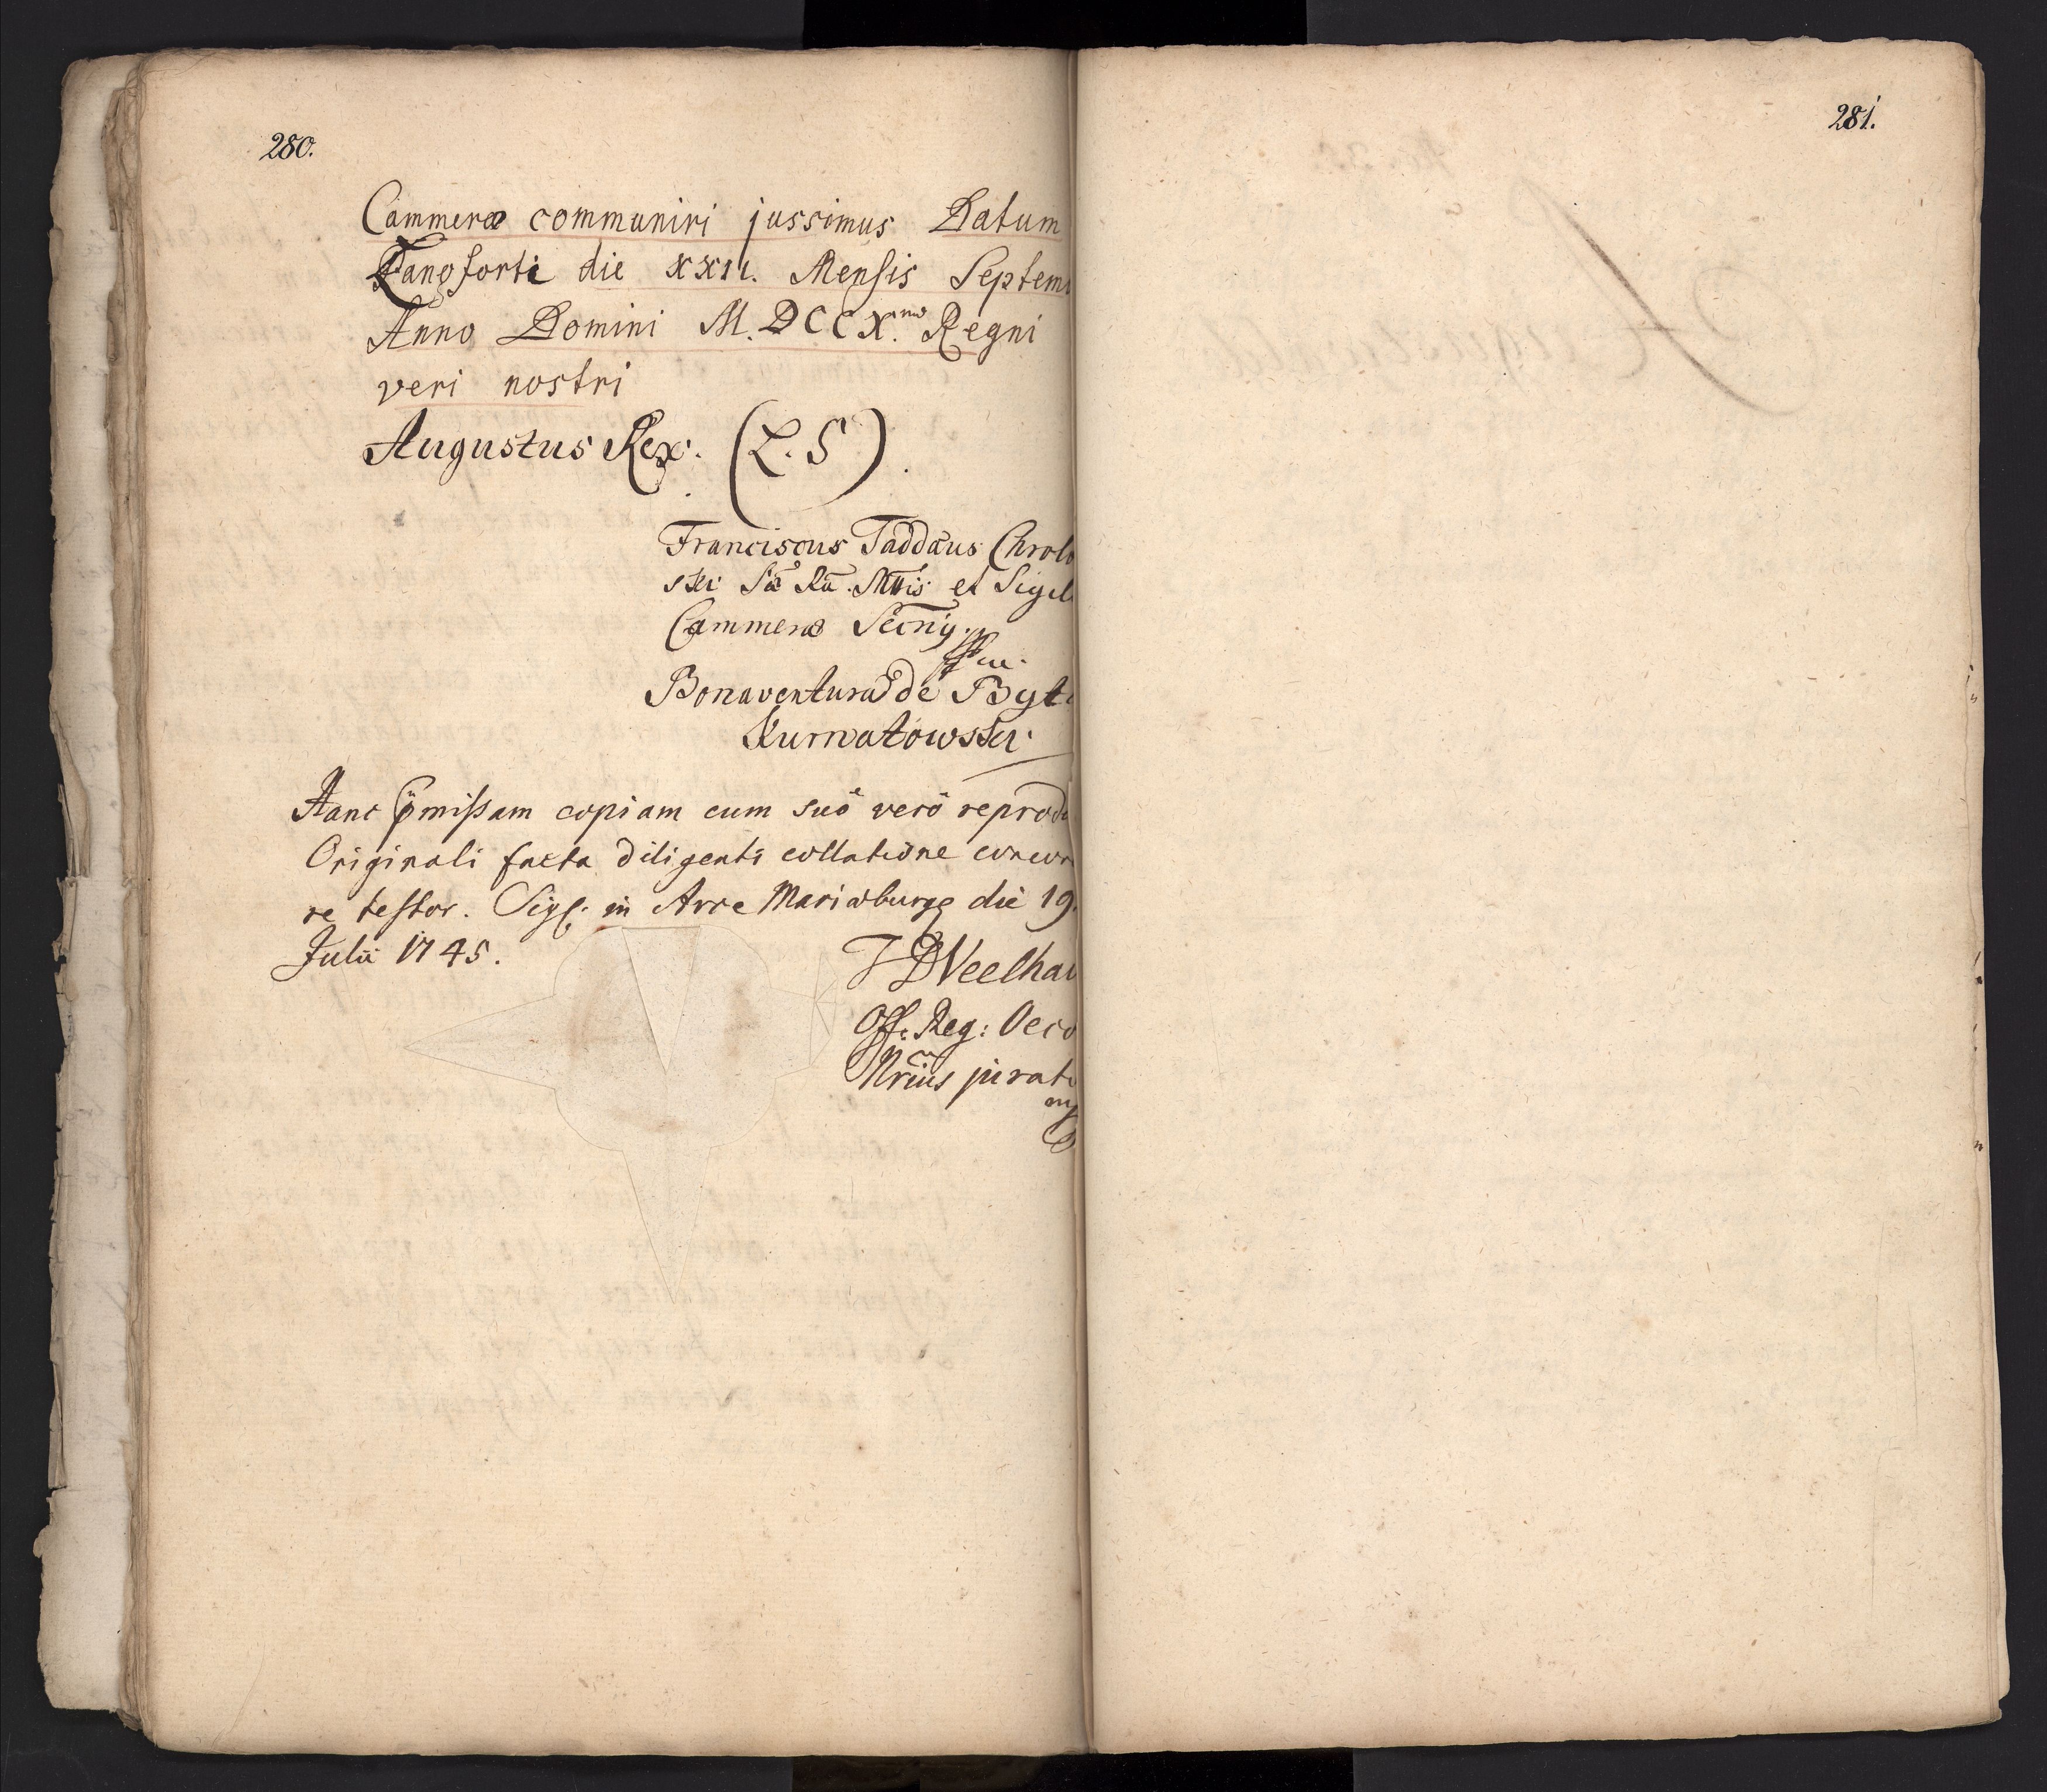 280.
Cammeræ communiri jussimus Datum
die XXII. Mensis Septem
Anno Domini M. DCCX.mo Regni
veri nostri
Augustus Rex. (L. S)
Franciscus Taddæus Chrol
ski Sã Rã. Mttis et Sigil
Cammeræ Secrij.
Bonaventura de Byt
Kurnatowski
Hanc p̈missam copiam cum suô verô reprod
Originali facta diligenti collatione concor
re testor. Sigl. in Arce Mariæburg die 19.
Julii 1745.
Off: Reg: Oeco
Nrius jurat
281.